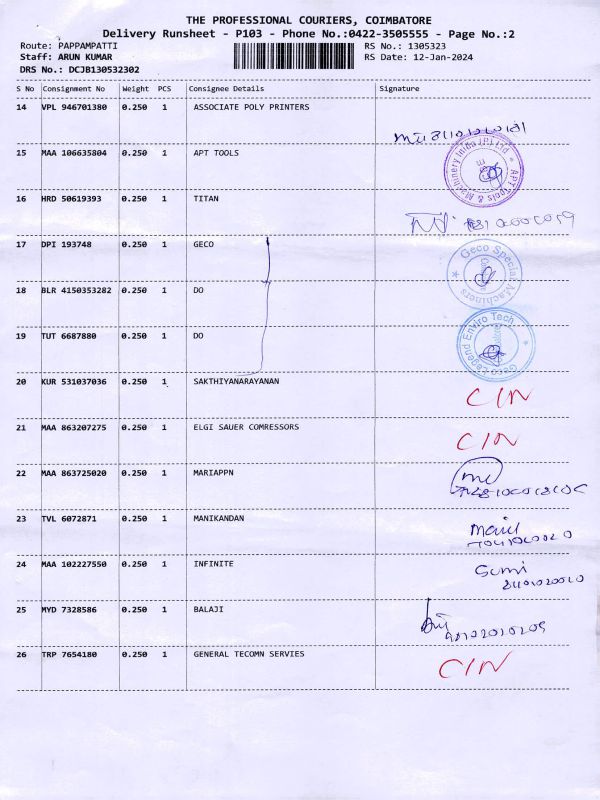 THE PROFESSIONAL COURIERS, COIMBATORE
Delivery Runsheet - P103 - Phone No.:0422-3505555 - Page No.:2
Route: PAPPAMPATTI RS No.: 1305323
Staff: ARUN KUMAR RS Date: 12-Jan-2024
DRS No.: DCJB130532302
S No Consignment No Weight PCS Consignee Details Signature
14 VPL 946701380 0.250 1 ASSOCIATE POLY PRINTERS
15 MAA 106635804 0.250 1 APT TOOLS
APT Tools & Machinery Inida (P) Ltd
16 HRD 50619393 0.250 1 TITAN
17 DPI 193748 0.250 1 GECO
Geco Special Machiners
18 BLR 4150353282 0.250 1 DO
19 TUT 6687880 0.250 1 DO
Geco Legend Enviro Tech
20 KUR 531037036 0.250 1 SAKTHIYANARAYANAN CIN
21 MAA 863207275 0.250 1 ELGI SAUER COMRESSORS CIN
22 MAA 863725020 0.250 1 MARIAPPN
23 TVL 6072871 0.250 1 MANIKANDAN
24 MAA 102227550 0.250 1 INFINITE Sumi
25 MYD 7328586 0.250 1 BALAJI
26 TRP 7654180 0.250 1 GENERAL TECOMN SERVIES CIN